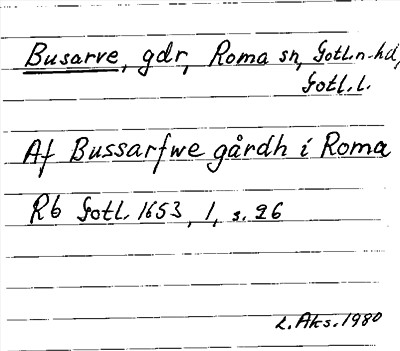 Busarve, gdr, Roma sn, Gotl.n.hd,
Gotl.l.
Af Bussarfwe gårdh i Roma
Rb Gotl. 1653, 1, s. 26
L. Aks. 1980